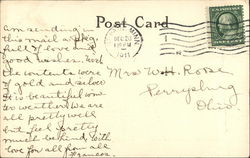 Post Card
am sending in
this mail a pkg
full of love and
good wishes. Wish
the contents were
of gold and silver
It is beautiful now
weather. We are
all pretty well
but feel pretty
much behind. With
love for all from all
Frances.
DEC 20
PM
1911
Mrs W.H. Roose
Perrysburg
Ohio